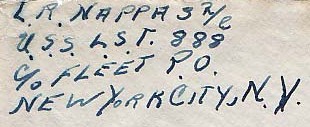 L.R. NAPPA S 2/C
U.S.S. L.S.T. 888
C/O FLEET P.O.
NEW YORK CITY, N.Y.